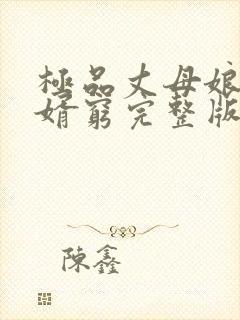 極品丈母娘
婿窮完整版
陳鑫